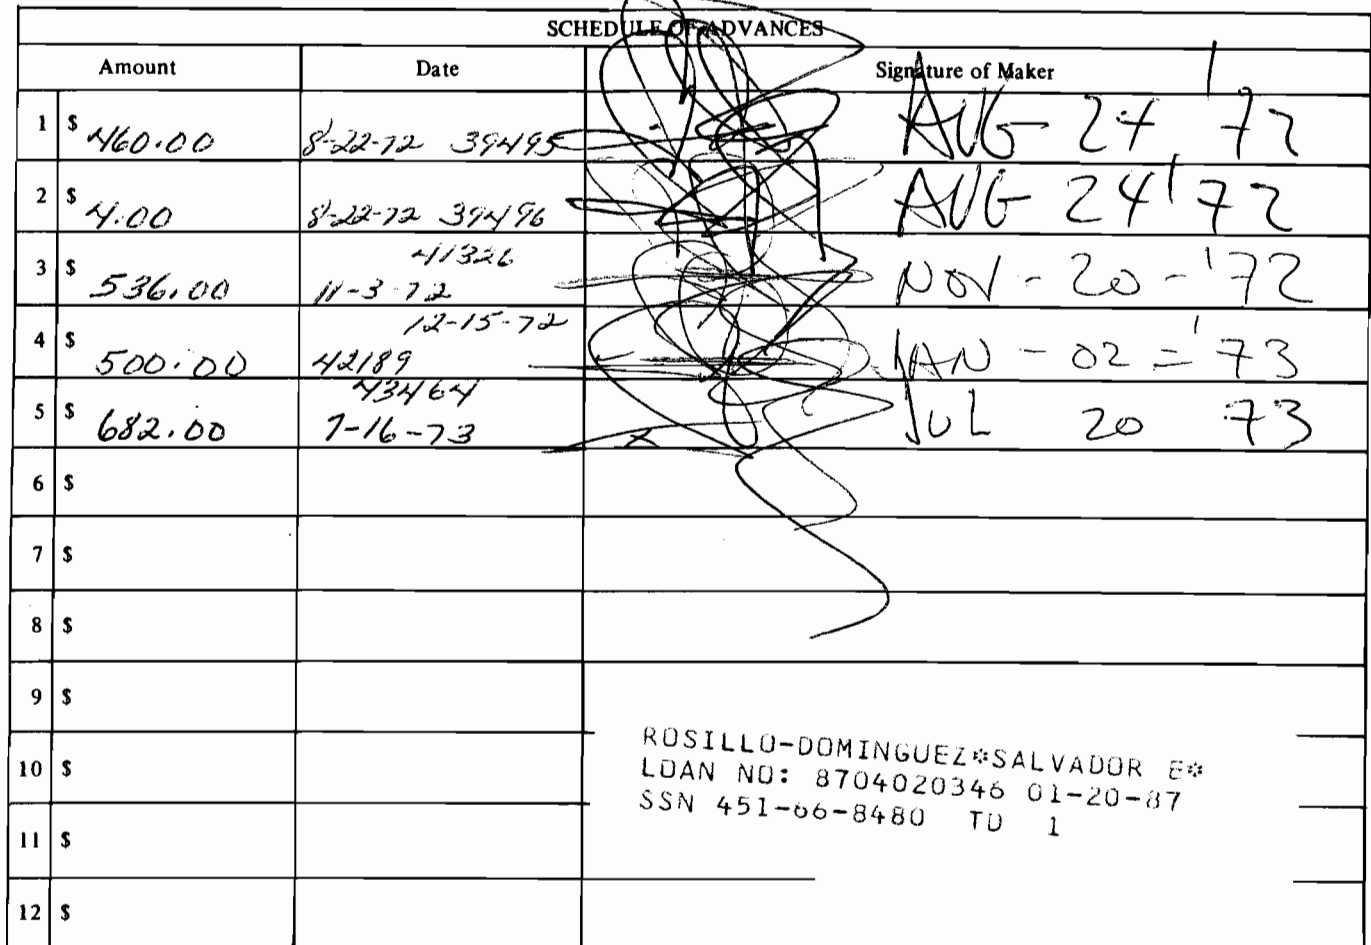 SCHEDULE OF ADVANCES
Amount Date Signature of Maker
1 $ 460.00 8-22-72 39495 AUG 24 '72
2 $ 4.00 8-22-72 39496 AUG 24 '72
41326
3 $ 536.00 11-3-72 NOV - 20 - '72
12-15-72
4 $ 500.00 42189 JAN - 02 = '73
43464
5 $ 682.00 7-16-73 JUL 20 73
6 $
7 $
8 $
9 $
10 $
11 $
12 $
ROSILLO-DOMINGUEZ*SALVADOR E*
LOAN NO: 8704020346 01-20-87
SSN 451-66-8480 TD 1